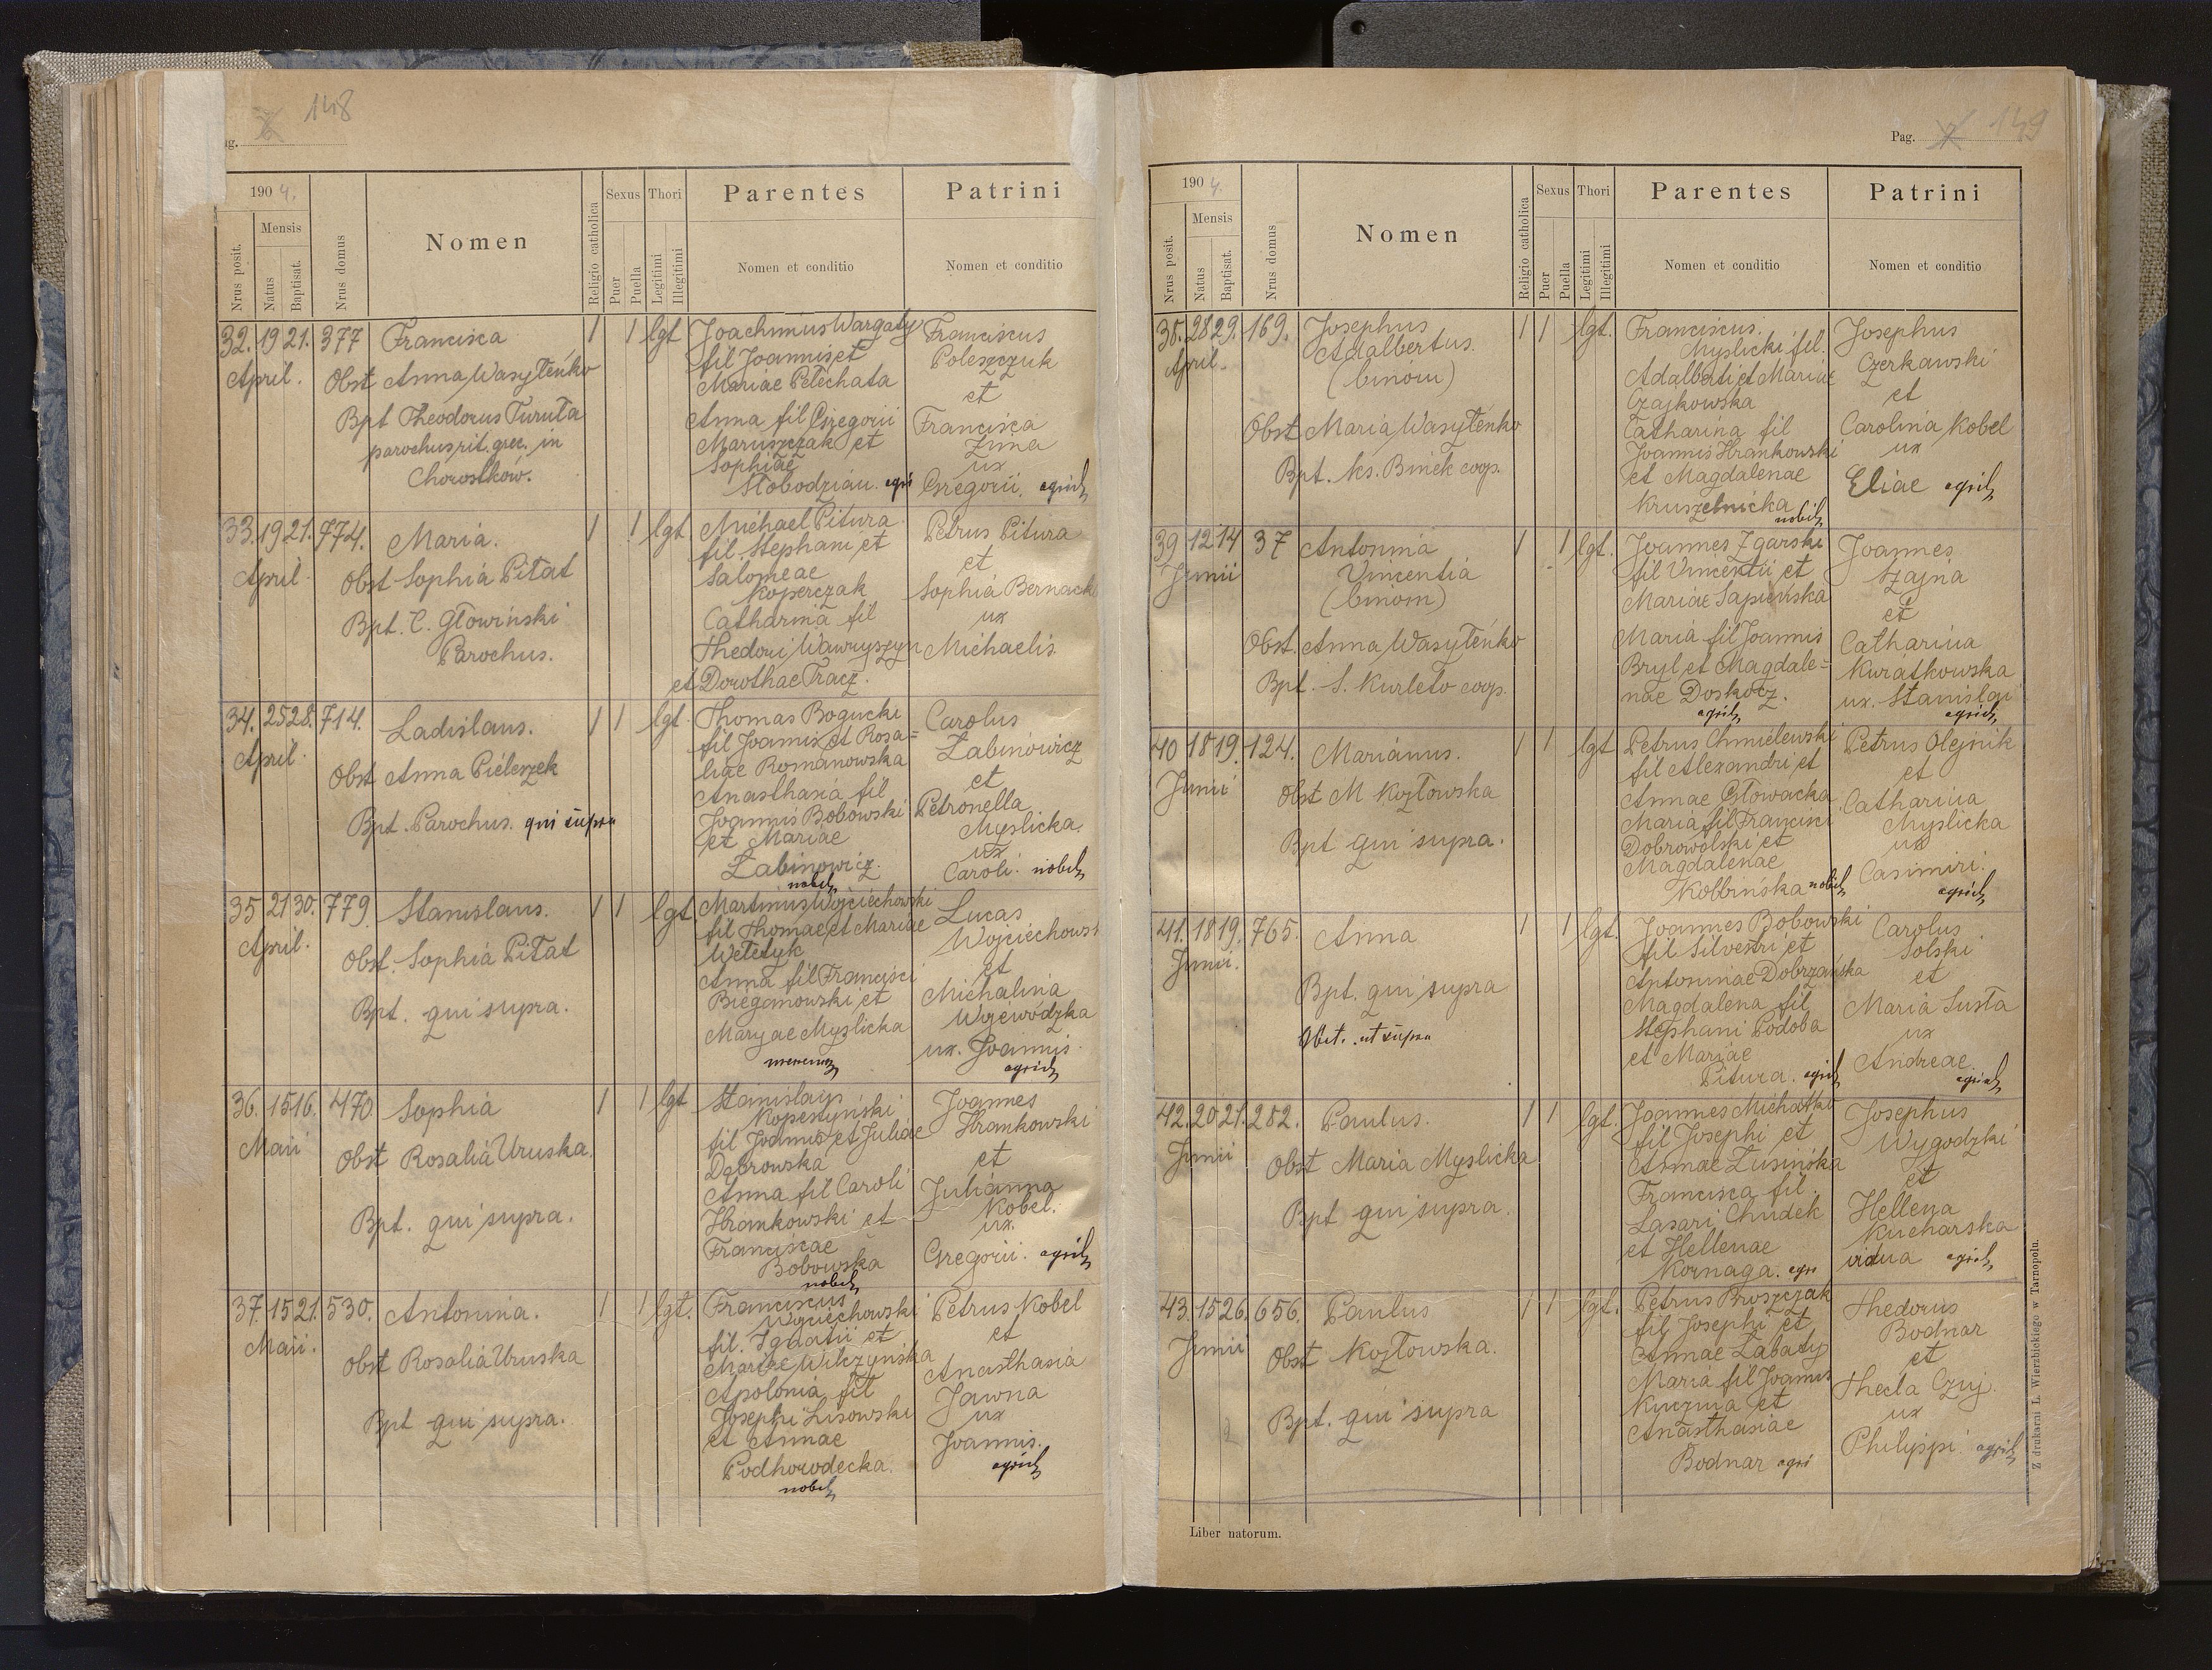 148
ag.
1904.
Nrus posit.
Mensis
Natus
Baptisat.
Nrus domus
Nomen
Religio catholica
Sexus
Puer
Puella
Thori
Legitimi
Illegitimi
Parentes
Nomen et conditio
Patrini
Nomen et conditio
32. 19 21. 377 Francisca 1 1 lgt Joachimus Wargaty Franciscus
fil Joannis et Poleszczuk
April. Obst Anna Wasyleńko Mariae Pelechata et
Bpt Theodorus Turuła Anna fil Gregorii Francisca
parochus rit. grec. in Maruszczak et Zima
Sophiae ux
Chorostków. Słobodzian. agri Gregorii. agricol
33. 19 21. 774. Maria. 1 1 lgt Michael Pitura Petrus Pitura
fil Stephani et et
April. Obst Sophia Pitat Salomeae Sophia Bernack
Koperczak ux
Bpt. C. Głowiński Catharina fil
Parochus. Thedori Wawryszyn Michaelis
et Dorothae Tracz.
34. 25 28. 714. Ladislaus. 1 1 lgt. Thomas Bogucki Carolus
fil Joannis et Rosa= Żabinowicz
April. Obst Anna Pieleszek liae Romanowska et
Anasthasia fil Petronella
Bpt. Parochus. qui supra Joannis Bobowski Myslicka
et Mariae ux
Żabinowicz. Caroli. nobil
nobil
35 21 30. 779. Stanislaus. 1 1 lgt Martinus Wojciechowski Lucas
fil Thomae et Mariae Wojciechowsk
April. Obst. Sophia Pitat Wełetyk et
Anna fil Francisci Michalina
Bpt. qui supra. Bieganowski et Wojewódzka
Maryae Myslicka ux. Joannis.
agricol
36. 15 16. 470 Sophia 1 1 lgt Stanislaus Joannes
Kopestyński Hrankowski
Maii Obst Rosalia Uruska. fil Joannis et Juliae et
Dobrowska Julianna
Anna fil Caroli Kobel.
Bpt. qui supra. Hrankowski et ux.
Franciscae Gregorii. agricol
Bobowska
nobil
37. 15 21. 530. Antonina. 1 1 lgt. Franciscus Petrus Kobel
Wojciechowski et
Maii. Obst Rosalia Uruska fil. Ignatii et Anasthasia
Mariae Wilczyńska Jawna
Apolonia fil ux
Bpt qui supra. Josephi Lisowski Joannis.
et Annae agricol
Podhorodecka.
nobil
Pag. 149
1904.
Nrus posit.
Mensis
Natus
Baptisat.
Nrus domus
Nomen
Religio catholica
Sexus
Puer
Puella
Thori
Legitimi
Illegitimi
Parentes
Nomen et conditio
Patrini
Nomen et conditio
38. 28 29. 169. Josephus 1 1 lgt. Franciscus. Josephus
Adalbertus. Myslicki fil. Czerkawski
April. (binom) Adalberti et Mariae et
Czajkowska Carolina Kobel
Obst Maria Wasyleńko Catharina fil ux
Joannis Hrankowski Eliae agricol
Bpt. ks. Binek coop. et Magdalenae
Kruszelnicka
nobil
39 12 14 37 Antonina 1 1 lgt. Joannes Zgarski Joannes
Junii Vincentia fil Vincentii et Szajna
(binom) Mariae Sapieńska et
Obst. Anna Wasyleńko Maria fil Joannis Catharina
Bryl et Magdale= Kuratkowska
Bpt. S. Kurleto coop. nae Doskocz. ux. Stanislai
agricol agricol
40 18 19. 124. Marianus. 1 1 lgt Petrus Chmielewski Petrus Olejnik
fil Alexandri et et
Junii Obst M Kozłowska Annae Głowacka Catharina
Maria fil Francisci Myslicka
Bpt qui supra. Dobrowolski et ux
Magdalenae Casimiri.
Kolbińska nobil agricol
41. 18 19. 765. Anna 1 1 lgt. Joannes Bobowski Carolus
fil Silvestri et Solski
Junii. Antoninae Dobrzańska et
Bpt. qui supra Magdalena fil Maria Susta
Stephani Podoba ux
Obst. ut supra et Mariae Andreae.
Pitura. agricol agricol
42. 20 21. 282. Paulus. 1 1 lgt. Joannes Michałko Josephus
fil Josephi et Wygodzki
Junii Obst Maria Myslicka Annae Łusińska et
Francisca fil. Hellena
Bpt qui supra. Lasari Chudek Kucharska
et Hellenae vidua agricol
Kornaga. agri
43. 15 26. 656. Paulus 1 1 lgt. Petrus Proszczak Thedorus
fil Josephi et Bodnar
Junii Obst Kozłowska. Annae Łabaty et
Maria fil Joannis Thecla Czuj.
Bpt. qui supra Kuczma et ux
Anasthasiae Philippi agricol
Bodnar agri
Liber natorum.
Z drukarni L. Wierzbickiego w Tarnopolu.